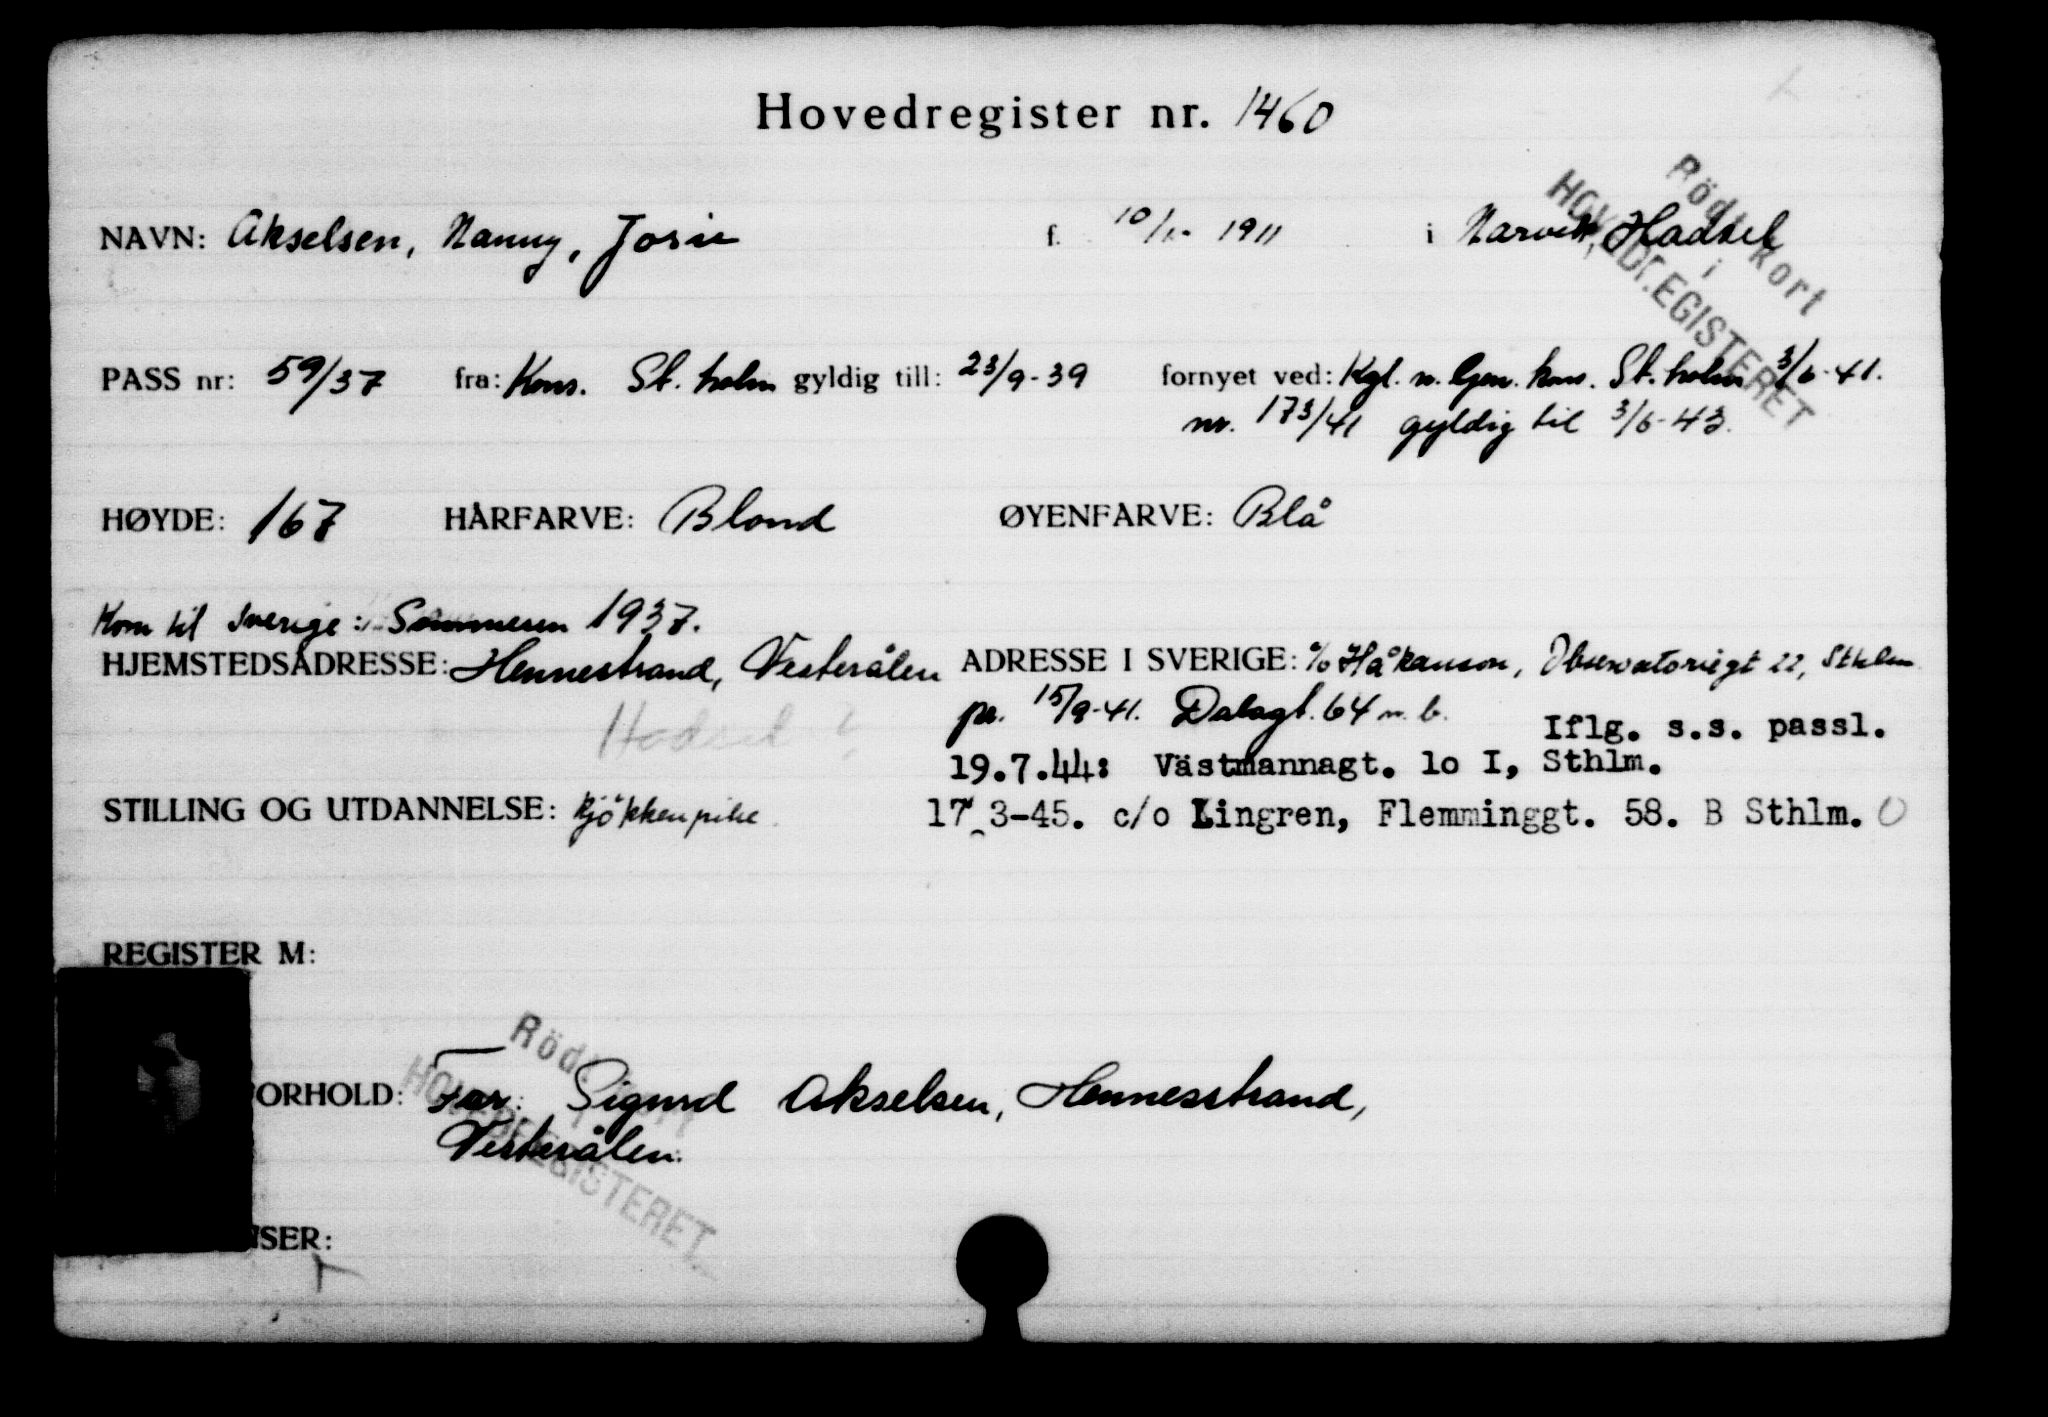 Hovedregister nr. 1460
Rödt kort
i
HOVEDREGISTERET
NAVN: Akselsen, Nanny, Josie f. 10/ 1911 i Narvik, Hadsel
PASS nr: 59/37 fra: Kons. St. holm gyldig till: 23/9-39 fornyet ved: Kgl. n. Gen. kons. St. holm 3/6-41.
nr. 173/41 gyldig til 3/6-43.
HØYDE: 167 HÅRFARVE: Blond ØYENFARVE: Blå
Kom til Sverige: Sommeren 1937.
HJEMSTEDSADRESSE: Hennestrand, Vesterålen ADRESSE I SVERIGE: c/o Håkanson, Observatoriegt 22, Sthlm
Hadsel ?
pr. 15/9-41. Dalagt. 64 n. b. Iflg. s.s. passl.
19.7.44: Västmannagt. 10 I, Sthlm.
STILLING OG UTDANNELSE: kjökkenpike 17 3-45. c/o Lingren, Flemminggt. 58. B Sthlm. O
REGISTER M:
Rödt kort
i
HOVEDREGISTERET
ORHOLD: Far: Sigurd Akselsen, Hennesstrand,
Vesterålen.
SER: